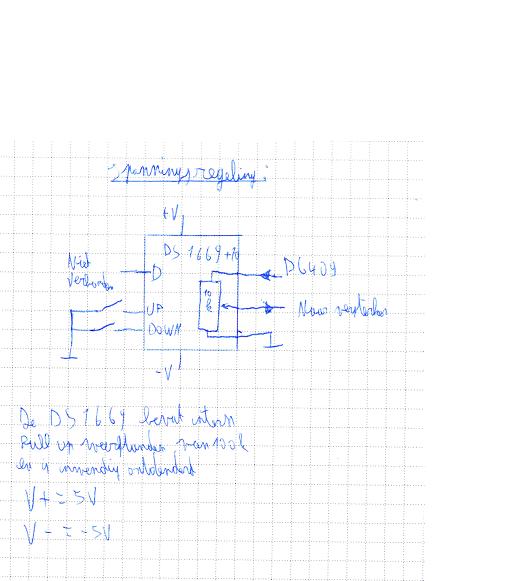 Spanningsregeling:
+V
DS1669+10
Niet
verbonden
D
DG409
10
k
UP
Naar versterker
DOWN
-V
De DS1669 bevat intern
Pull up weerstanden van 100k
en is inwendig ontdenderd
V+ = 5V
V- = -5V